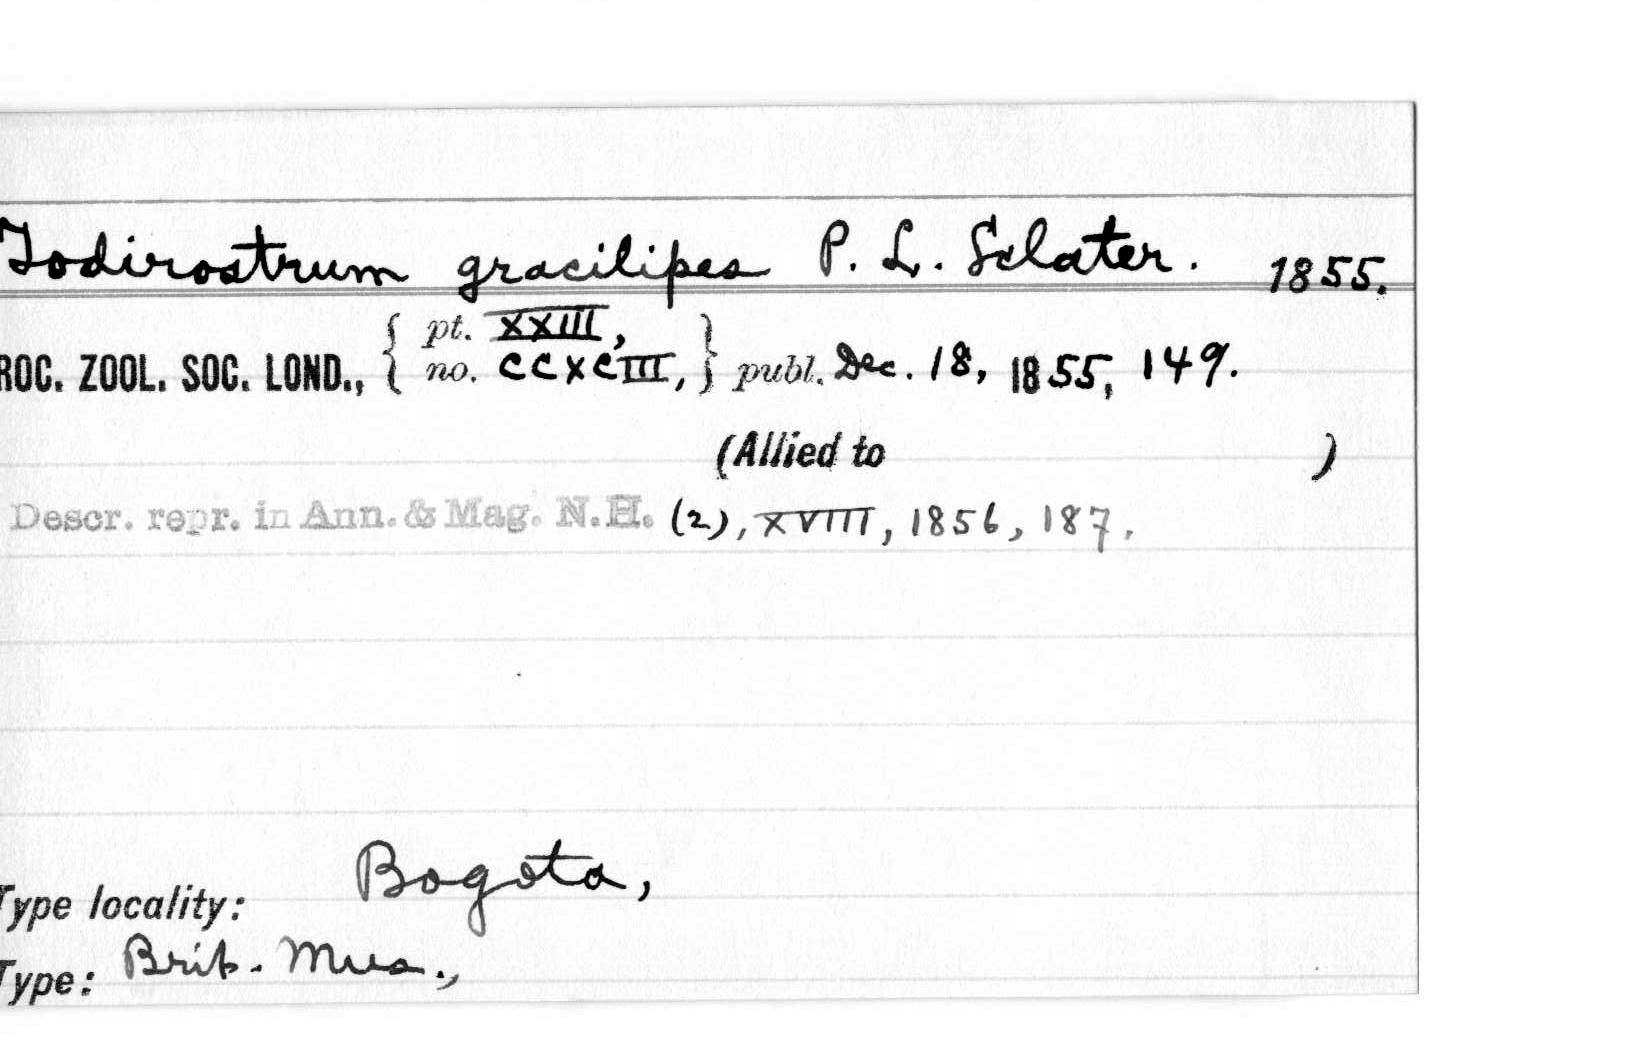 Todirostrum gracilipes P. L. Sclater. 1855.
ROC. ZOOL. SOC. LOND., { pt. XXIII, no. CCXCIII, } publ. Dec. 18, 1855, 149.
(Allied to )
Descr. repr. in Ann. & Mag. N.H. (2), XVIII, 1856, 187.
Type locality: Bogota,
Type: Brit. Mus.,